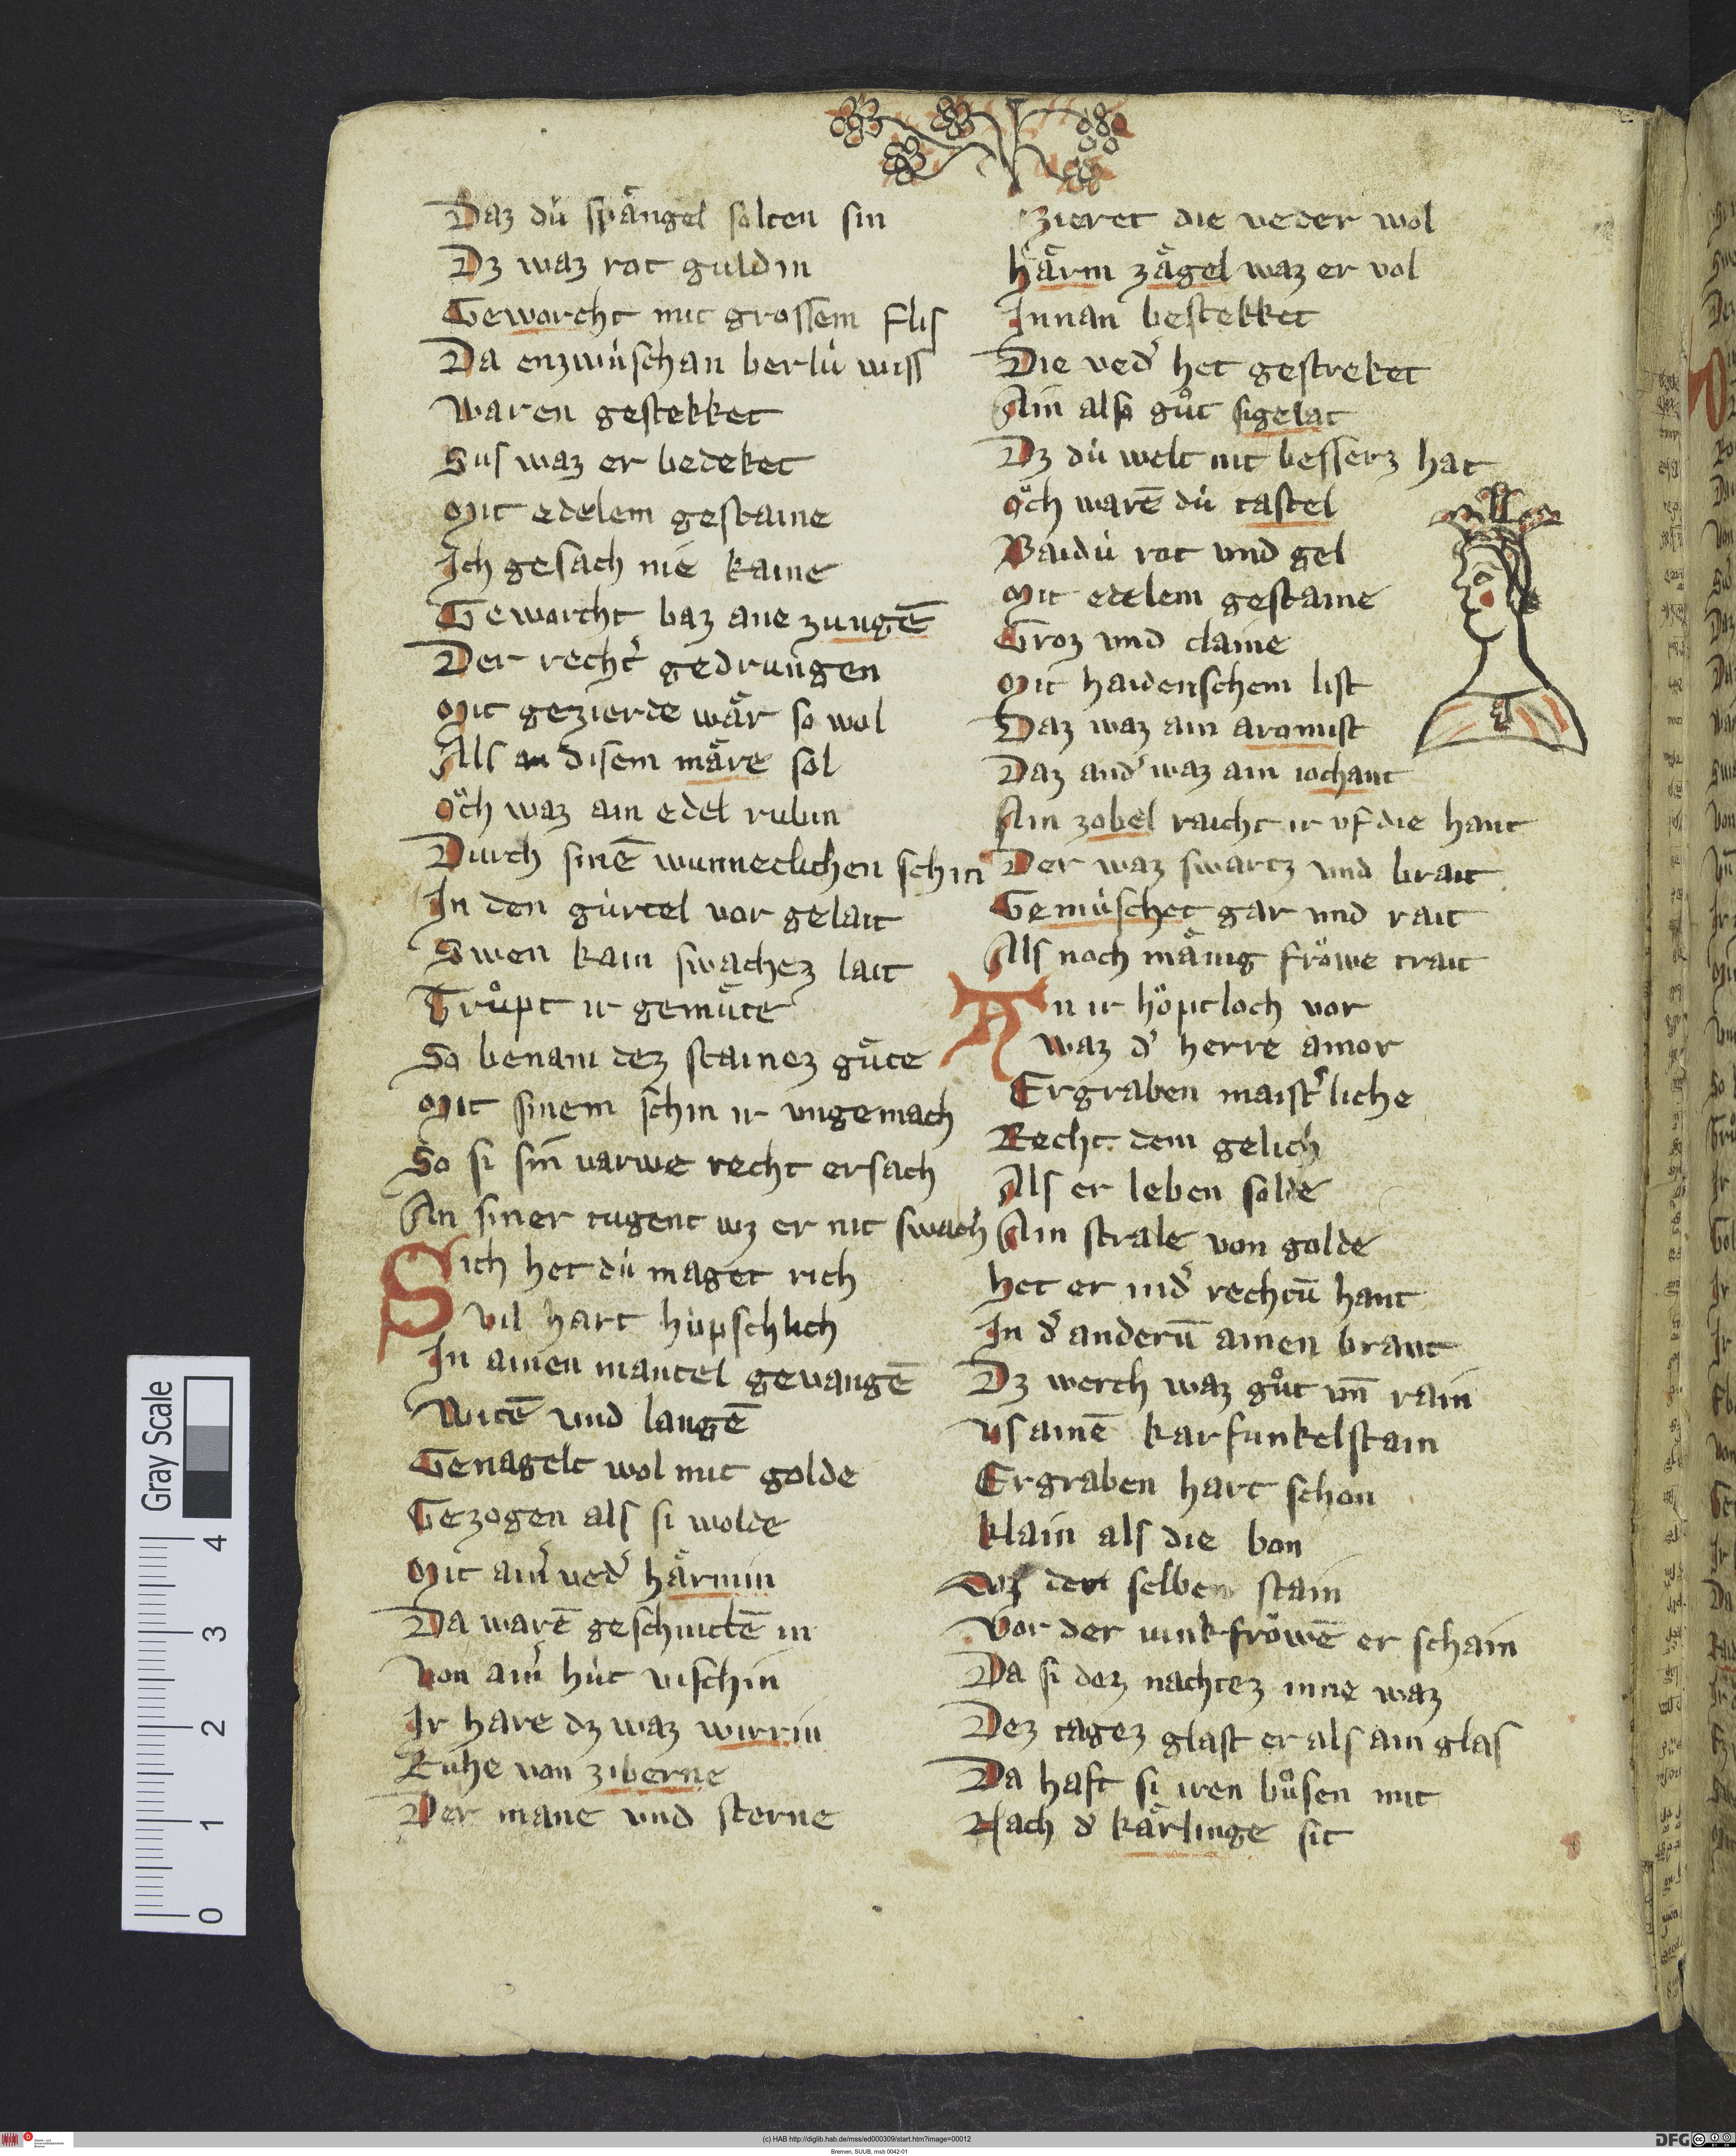 Daz dú spaͤngel solten sin
Dz waz rot guldin
Geworcht mit grossem flis
Da enzwúschan berlú wiss
Waren gestekket
Sus waz er bedeket
Mit edelem gestaine
Ich gesach nie kaine
Geworcht baz ane zungē
Der recht͛ gedrungen
Mit gezierde waͤr so wol
Als an disem maͤre sol
Oͮch waz ain edel rubin
Durch sinē wunneclichen schin
In den gúrtel vor gelait
Swen kain swachez lait
Truͦpt ir gemuͤte
So benam dez stainez guͤte
Mit sinem schin ir vngemach
So si sin varwe recht ersach
An siner tugent wz er nit swach
Sich het dú maget rich
Vil hart húpschlich
In ainen mantel gevangē
Witē vnd langē
Genagelt wol mit golde
Gezogen als si wolde
Mit ain͛ ved͛ haͤrmin
Da warē geschnittē in
Von ain͛ hút vischin
Ir hare dz waz wirrin
Ruhe von ziberne
Der mane vnd sterne
zieret die veder wol
haͤrm zaͤgel waz er vol
Innan bestekket
Die ved͛ het gestreket
Ain also guͦt sigelat
Dz dú welt nit besserz hat
Oͮch warē dú tastel
Baidú rot vnd gel
Mit edelem gestaine
Groz vnd claine
Mit haidenschem list
Daz waz ain aromist
Daz and͛ waz ain iochant
Ain zobel raicht ir vf die hant
Der waz swartz vnd brait
Gemúschet gar vnd rait
Als noch maͤnig froͮwe trait
An ir hoͮptloch vor
waz d͛ herre amor
Ergraben maist͛liche
Recht dem gelich
Als er leben solde
Ain strale von golde
het er in d͛ rechtū hant
In d͛ anderū ainen brant
Dz werch waz guͦt vn̄ rain
vs ainē karfunkelstain
Ergraben hart schon
klain als die bon
selben stain
Vor der iunkfroͮwē er schain
Da si dez nachtez inne waz
Dez tagez glast er als ain glas
Da haft si iren buͦsen mit
Nach d͛ kaͤrlinge sit
Gray Scale
4
3
2
1
0
(c) HAB http://diglib.hab.de/mss/ed000309/start.htm?image=00012
Bremen, SUUB, msb 0042-01
DFG